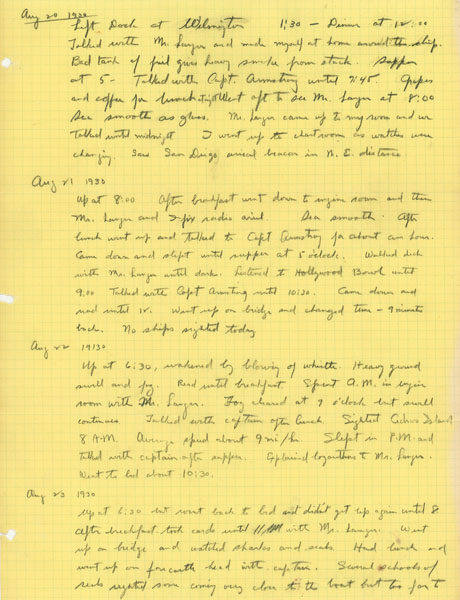 Aug 20 1930
Left Dock at Wilmington 1:30 - Dinner at 12:00
Talked with Mr. Langer and made myself at home around the ship.
Bad tank of fuel gives heavy smoke from stack. Supper
at 5 - Talked with Capt. Armstrong until 7:45. Grapes
and coffee for lunch tonight Went aft to see Mr. Langer at 8:00
Sea smooth as glass. Mr. Langer came up to my room and we
talked until midnight I went up to chartroom as watches were
changing. Saw San Diego aerial beacon in N.E. distance
Aug 21 1930
Up at 8:00 After breakfast went down to engine room and then
Mr. Langer and I fix radio aerial. Sea smooth. After
lunch went up and talked to Capt Armstrong for about an hour.
Came down and slept until supper at 5 o'clock. Walked deck
with Mr. Langer until dark. Listened to Hollywood Bowl until
9:00 Talked with Capt Armstrong until 10:30. Came down and
read until 12. Went up on bridge and changed time - 9 minutes
back. No ships sighted today
Aug 22 1930
Up at 6:30, wakened by blowing of whistle. Heavy ground
swell and fog. Read until breakfast Spent A.M. in engine
room with Mr. Langer. Fog cleared at 9 o'clock but swell
continues. Talked with captain after lunch. Sighted Cedros Island
8 A.M. Average speed about 9 mi/hr. Slept in P.M. and
talked with captain after supper. Explained logarithms to Mr. Langer.
Went to bed about 10:30.
Aug 23 1930
Up at 6:30 but went back to bed and didn't get up again until 8
After breakfast took cards until 11 AM with Mr. Langer. Went
up on bridge and watched sharks and seals. Had lunch and
went up on forecastle head with captain. Several schools of
seals sighted some coming very close to the boat but too far to